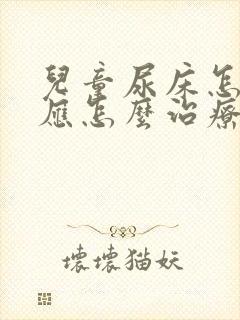 兒童尿床怎
應怎麼治療
壞壞猫妖